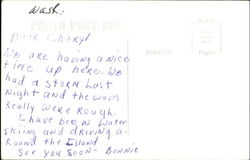 Wash.
PHOTO POST CARD
Dear Cheryl
We are having a nice
time up here. We
had a storm last
night and the waves
Really were Rough.
I have been water
skiing and driving a-
Round the Island.
See you soon - Bonnie
ADDRESS